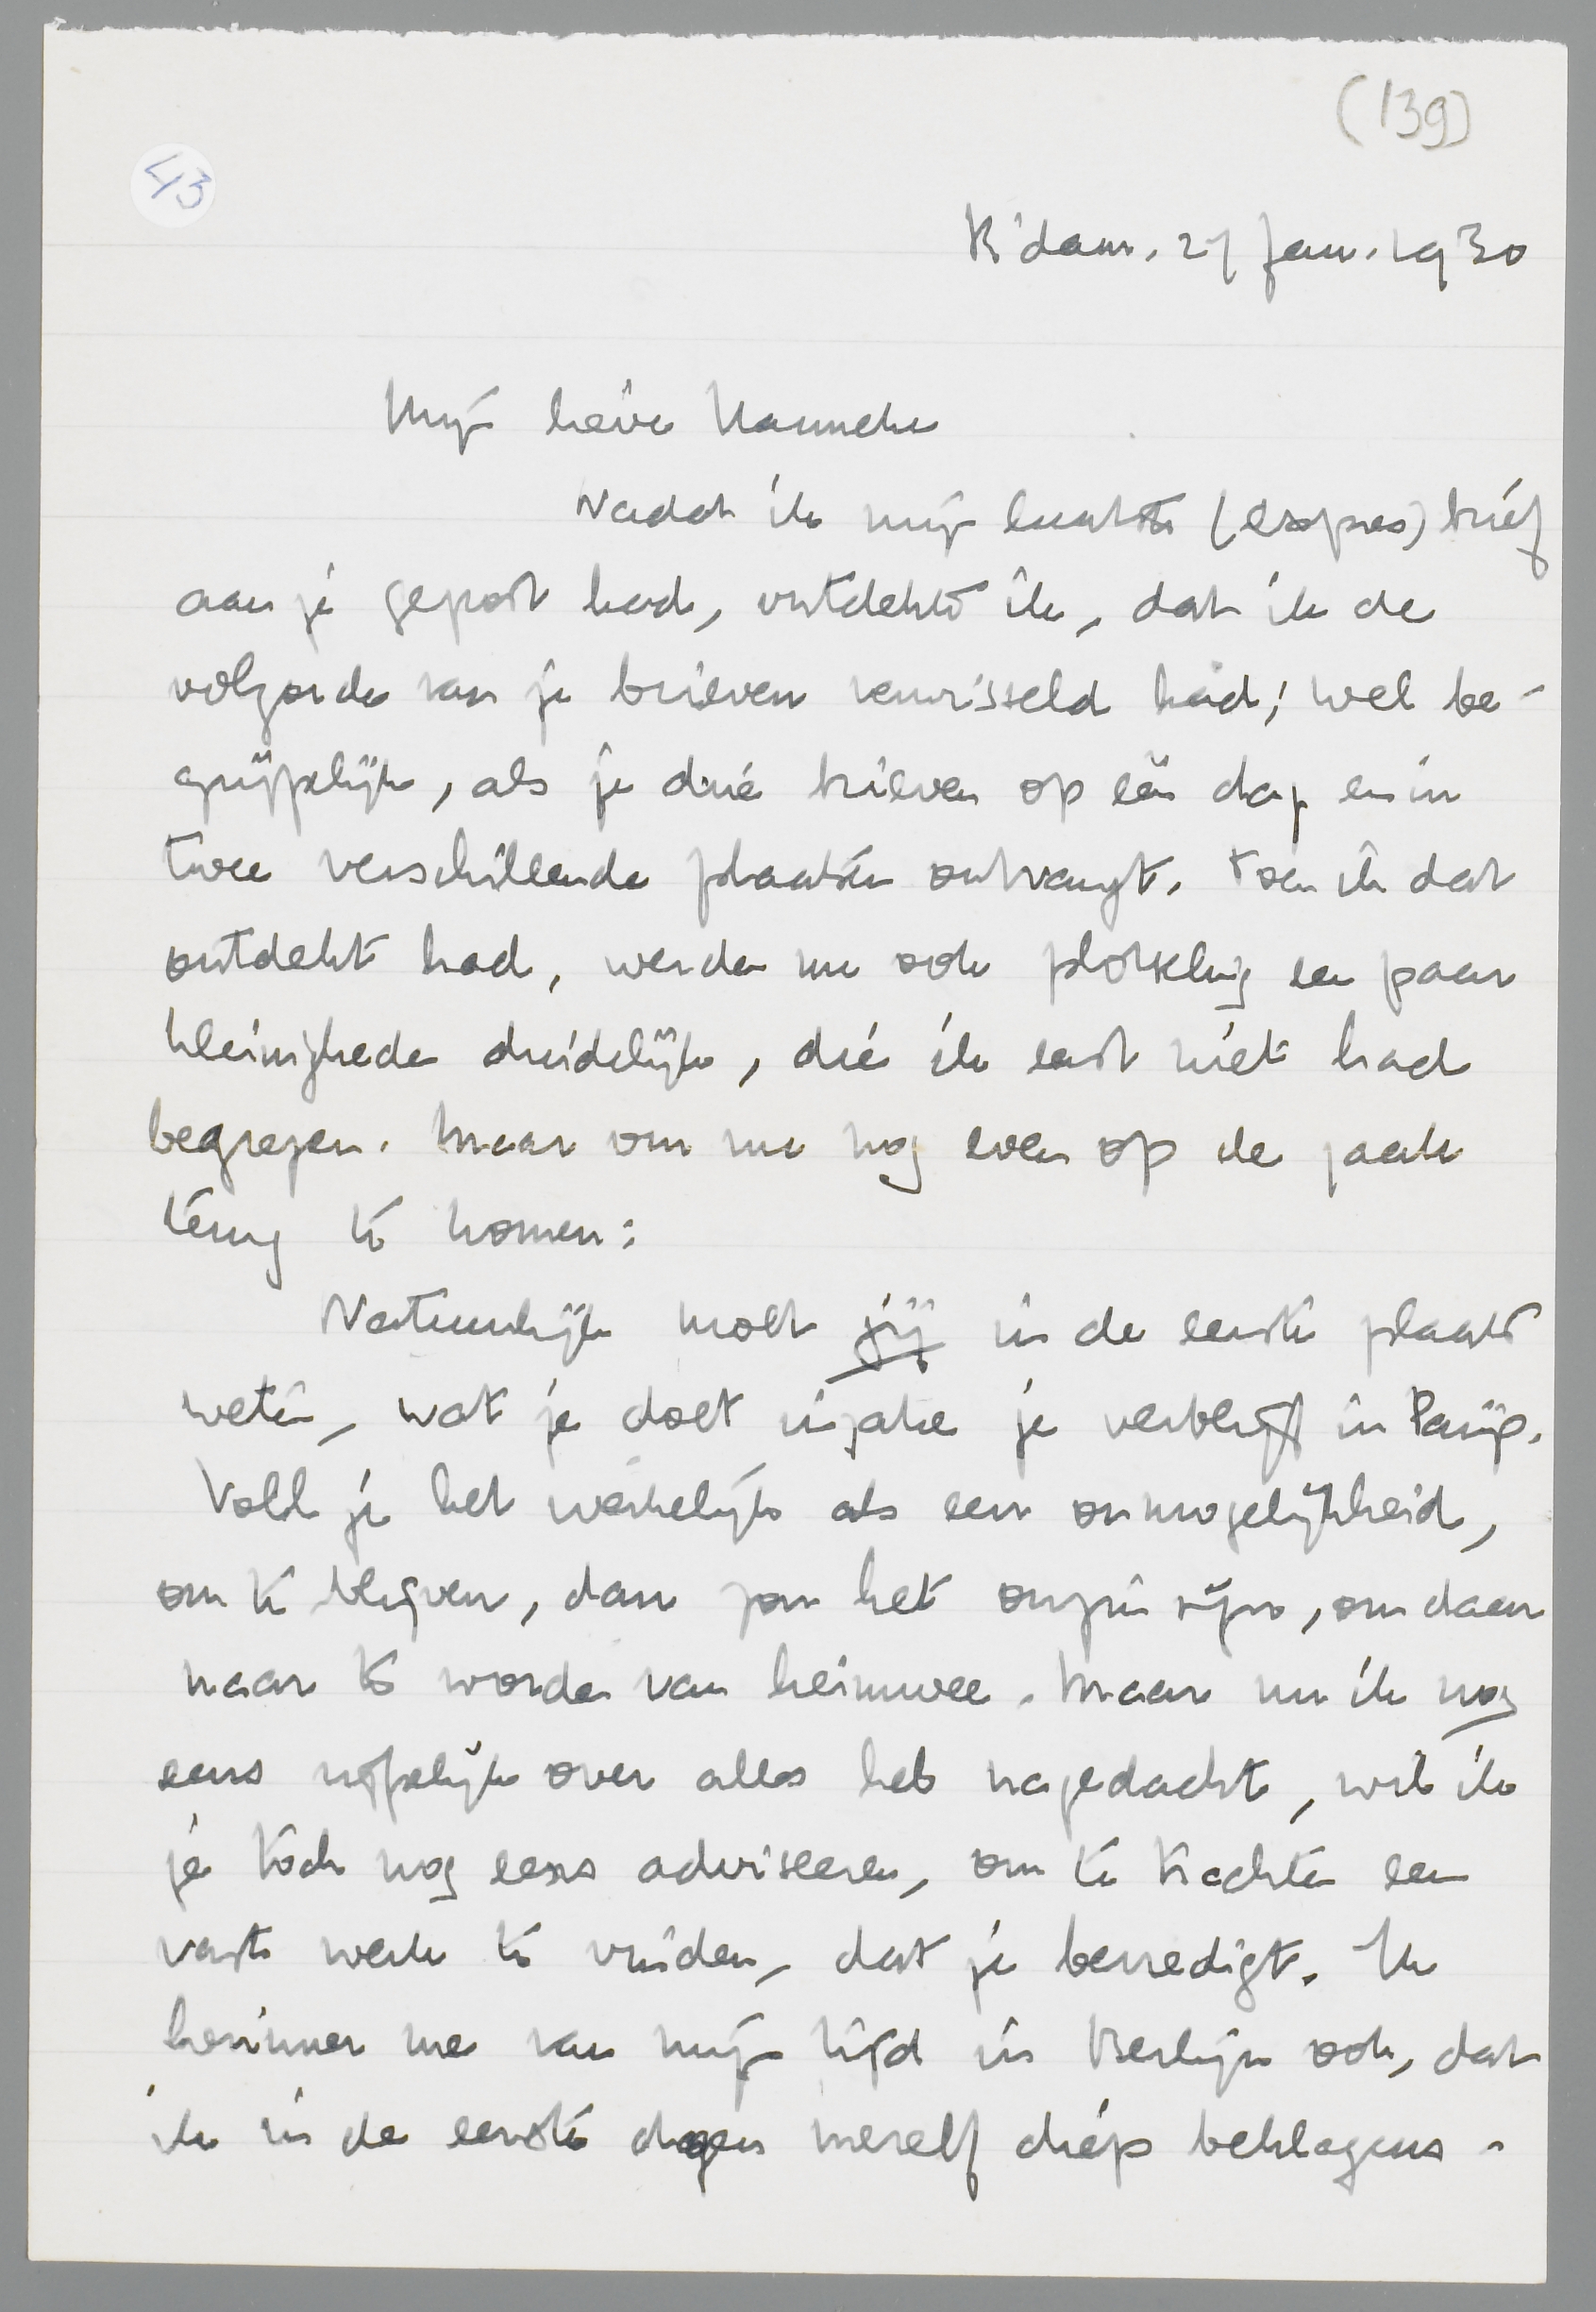 (139)
43
R'dam. 27 Jan. 1930
Mijn lieve Hanneke
Nadat ik mijn laatste (expres) brief
aan je gepost had, ontdekte ik, dat ik de
volgorde van je brieven verwisseld had; wel be-
grijpelijk, als je drie brieven op één dag en in
twee verschillende plaatsen ontvangt. Toen ik dat
ontdekt had, werden me ook plotseling een paar
kleinigheden duidelijk, die ik eerst niet had
begrepen. Maar om nu nog even op de zaak
terug te komen:
Natuurlijk moet jij in de eerste plaats
weten, wat je doet inzake je verblijf in Parijs.
Voel je het werkelijk als een onmogelijkheid,
om te blijven, dan zou het onzin zijn, om daar
naar te worden van heimwee. Maar nu ik nog
eens rijpelijk over alles heb nagedacht, wil ik
je toch nog eens adviseeren, om te trachten een
vast werk te vinden, dat je bevredigt. Ik
herinner me van mijn tijd in Berlijn ook, dat
ik in de eerste dagen mezelf diep beklagens-